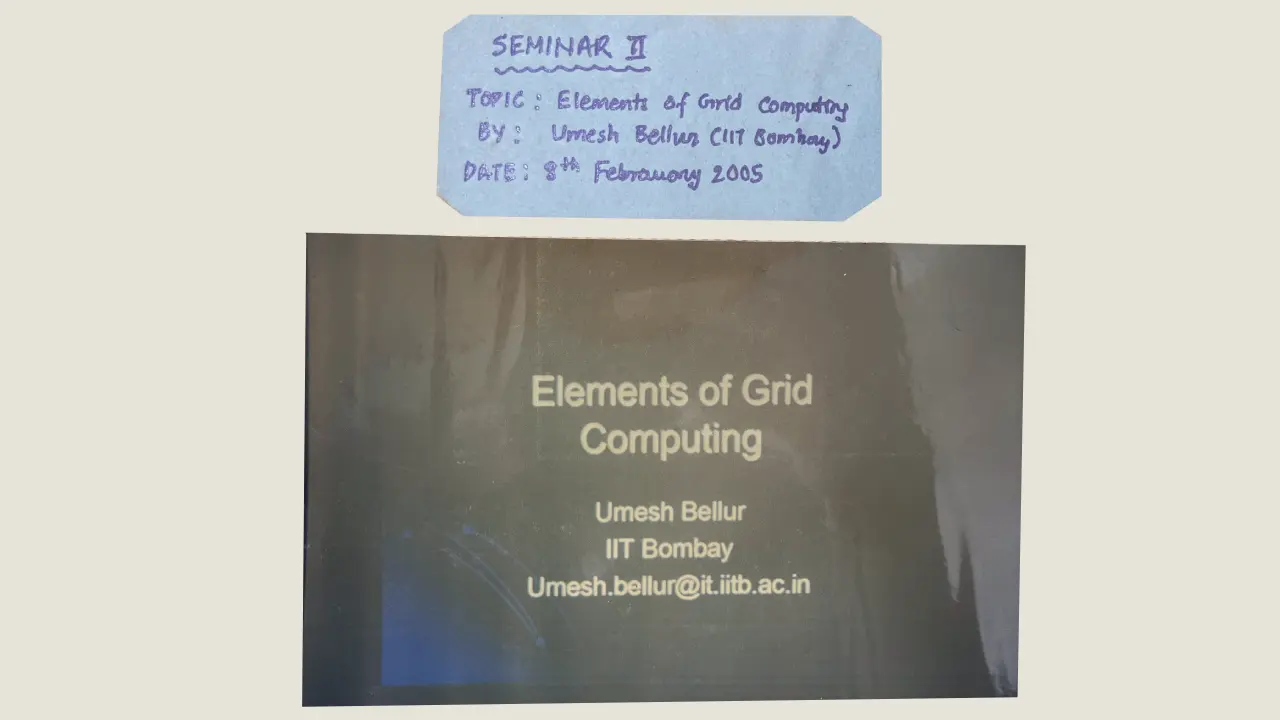 SEMINAR II
TOPIC: Elements of Grid Computing
BY: Umesh Bellur (IIT Bombay)
DATE: 8th February 2005
Elements of Grid
Computing
Umesh Bellur
IIT Bombay
Umesh.bellur@it.iitb.ac.in